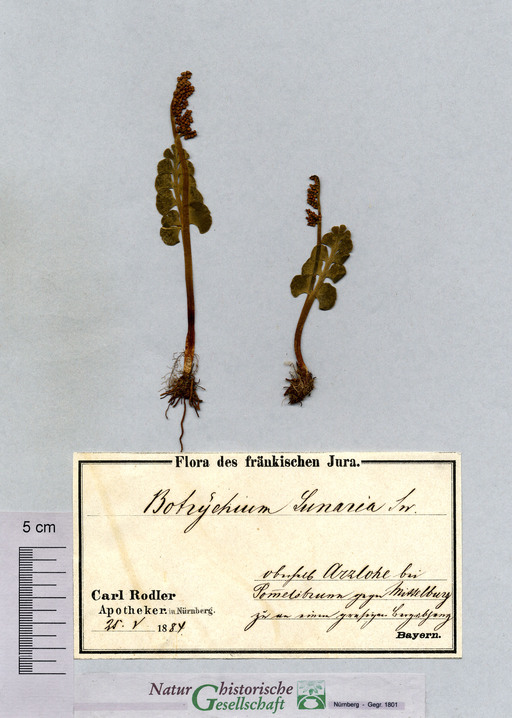 Flora des fränkischen Jura.
Botrychium Lunaria Sw.
oberhalb Arzlohe bei
Pomelsbrunn gegen Mittelburg
zu an einem grasigen Bergabhang
Carl Rodler
Apotheker in Nürnberg.
25. V 1884
Bayern.
5 cm
Naturhistorische
Gesellschaft
Nürnberg - Gegr. 1801